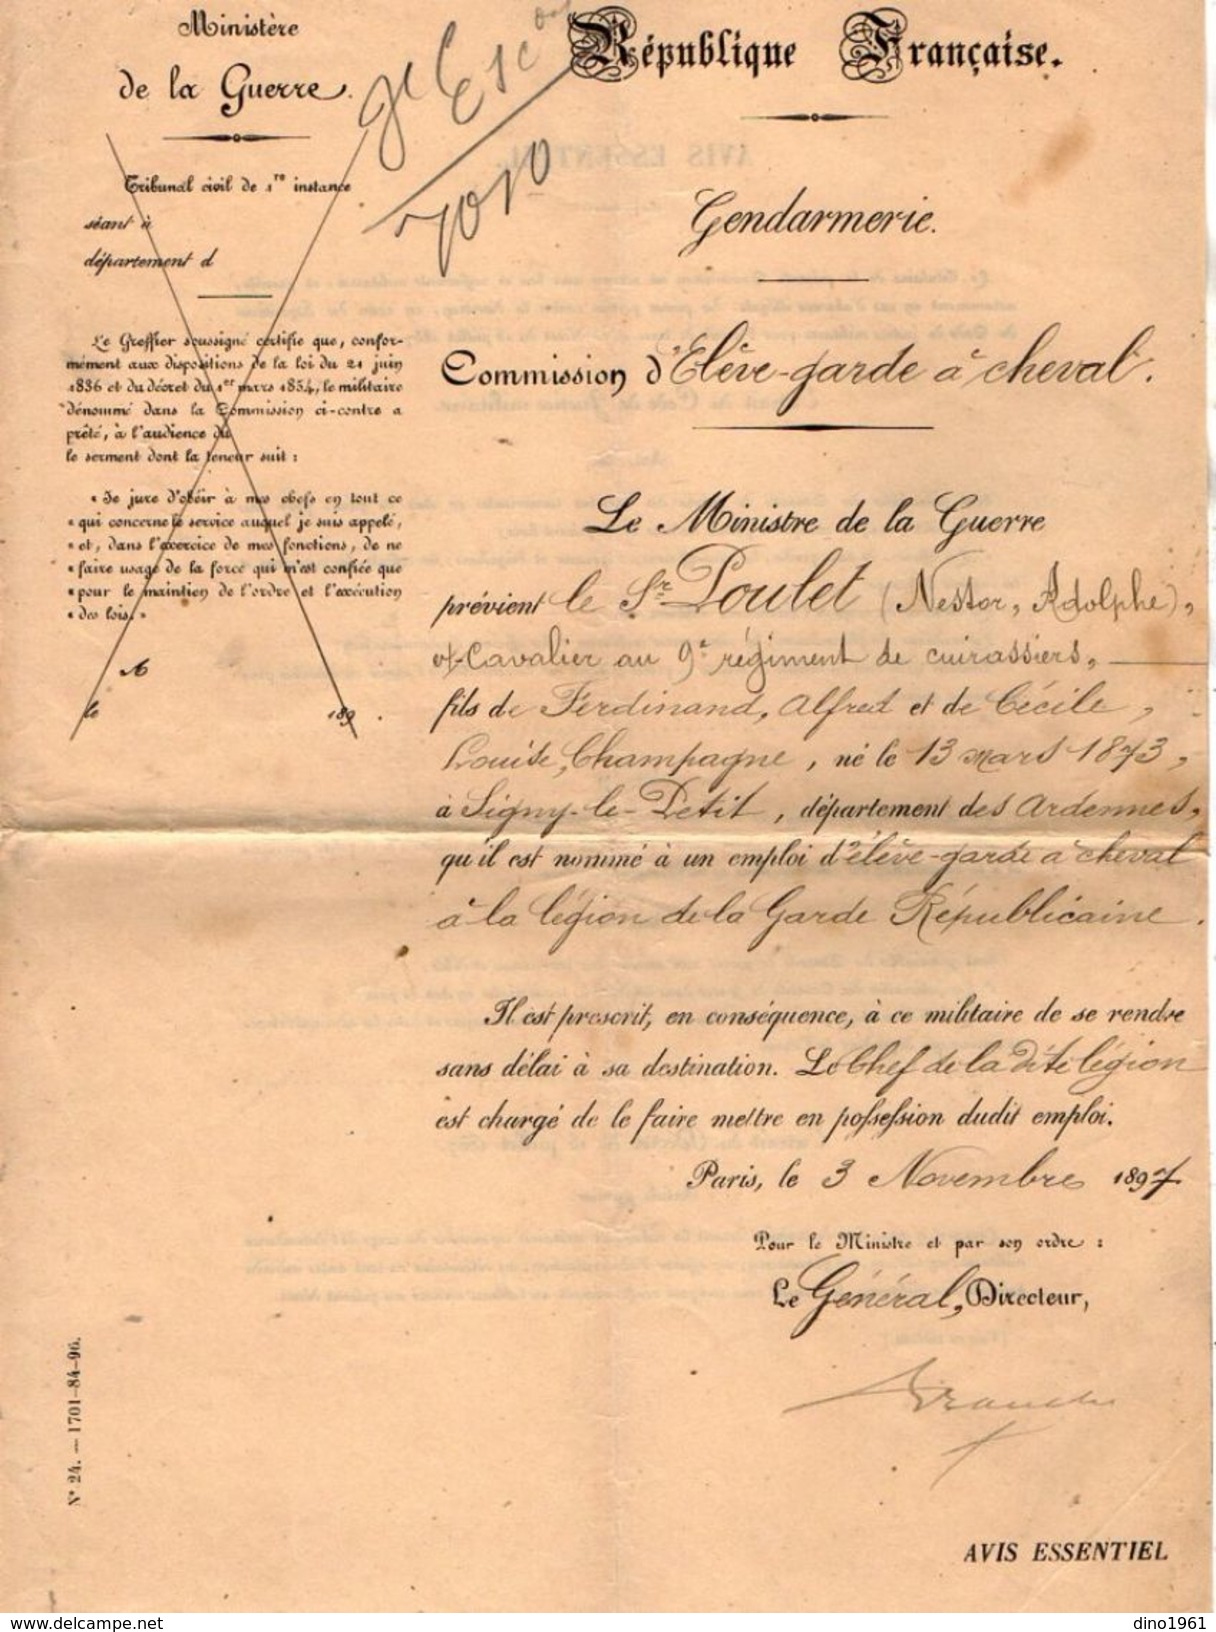 Ministère
de la Guerre.
Tribunal civil de 1re instance
séant à
département d
Le Greffier soussigné certifie que, confor-
mément aux dispositions de la loi du 21 juin
1836 et du décret du 1er mars 1854, le militaire
dénommé dans la Commission ci-contre a
prêté, à l'audience du
le serment dont la teneur suit :
« Je jure d'obéir à mes chefs en tout ce
« qui concerne le service auquel je suis appelé,
« et, dans l'exercice de mes fonctions, de ne
« faire usage de la force qui m'est confiée que
« pour le maintien de l'ordre et l'exécution
« des lois. »
A
le 189 .
N° 24. — 1701-84-96.
République Française.
Gendarmerie.
Commission d'Elève-garde à cheval.
Le Ministre de la Guerre
prévient le Sr Poulet (Nestor, Adolphe),
ex-Cavalier au 9e régiment de cuirassiers,
fils de Ferdinand, Alfred et de Cécile,
Louise, Champagne, né le 13 mars 1873,
à Signy-le-Petit, département des Ardennes,
qu'il est nommé à un emploi d'élève-garde à cheval
à la légion de la Garde Républicaine.
Il est prescrit, en conséquence, à ce militaire de se rendre
sans délai à sa destination. Le Chef de la dite légion
est chargé de le faire mettre en possession dudit emploi.
Paris, le 3 Novembre 1897
Pour le Ministre et par son ordre :
Le Général, Directeur,
AVIS ESSENTIEL
dino1961